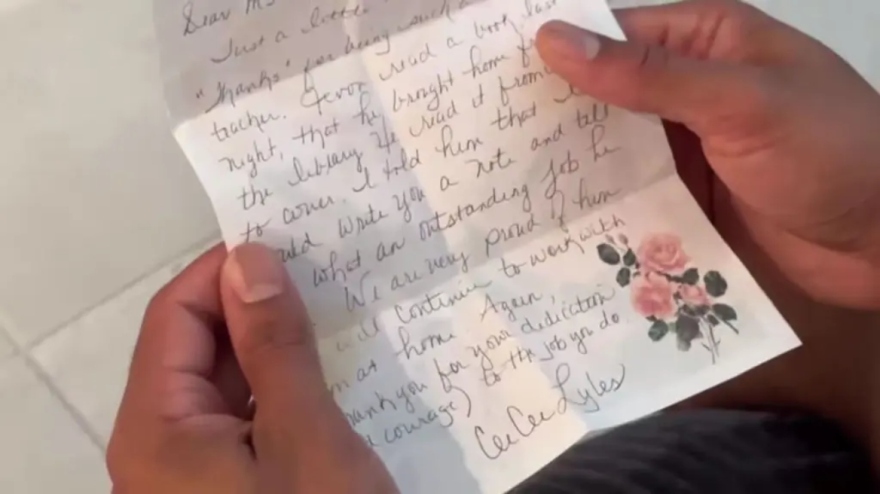 Dear M
Just a little
"Thanks" for being such a
teacher. Jevon read a book last
night, that he brought home f
the library. He read it from
to cover. I told him that I
uld write you a note and tell
what an outstanding job he
We are very proud of him
will continue to work with
m at home. Again,
hank you for your dedication
courage) to the job you do
CeeCee Lyles